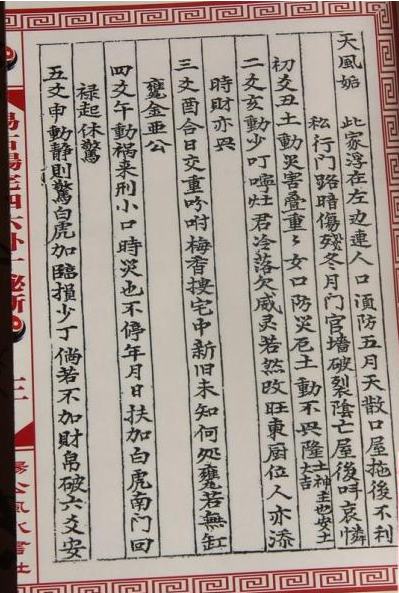 天風姤　此家浮在左边連人口須防五月天散口屋拖後不利
私行門路暗傷残冬月門官墙破裂陰亡屋後呌哀憐
初爻丑土動災害疊重々女口防災厄土動不興隆土神主也安土大吉
二爻亥動少叮嚀灶君冷落欠威灵若然改旺東厨位人亦添
時財亦興
三爻酉合日交重吟咐梅香接宅中新旧未知何処甕若無缸
甕金亜公
四爻午動禍来刑小口時災也不停年月日扶加白虎南門回
禄起休驚
五爻申動静則驚白虎加臨損少丁倘若不加財帛破六爻安
易占陽宅四六卦